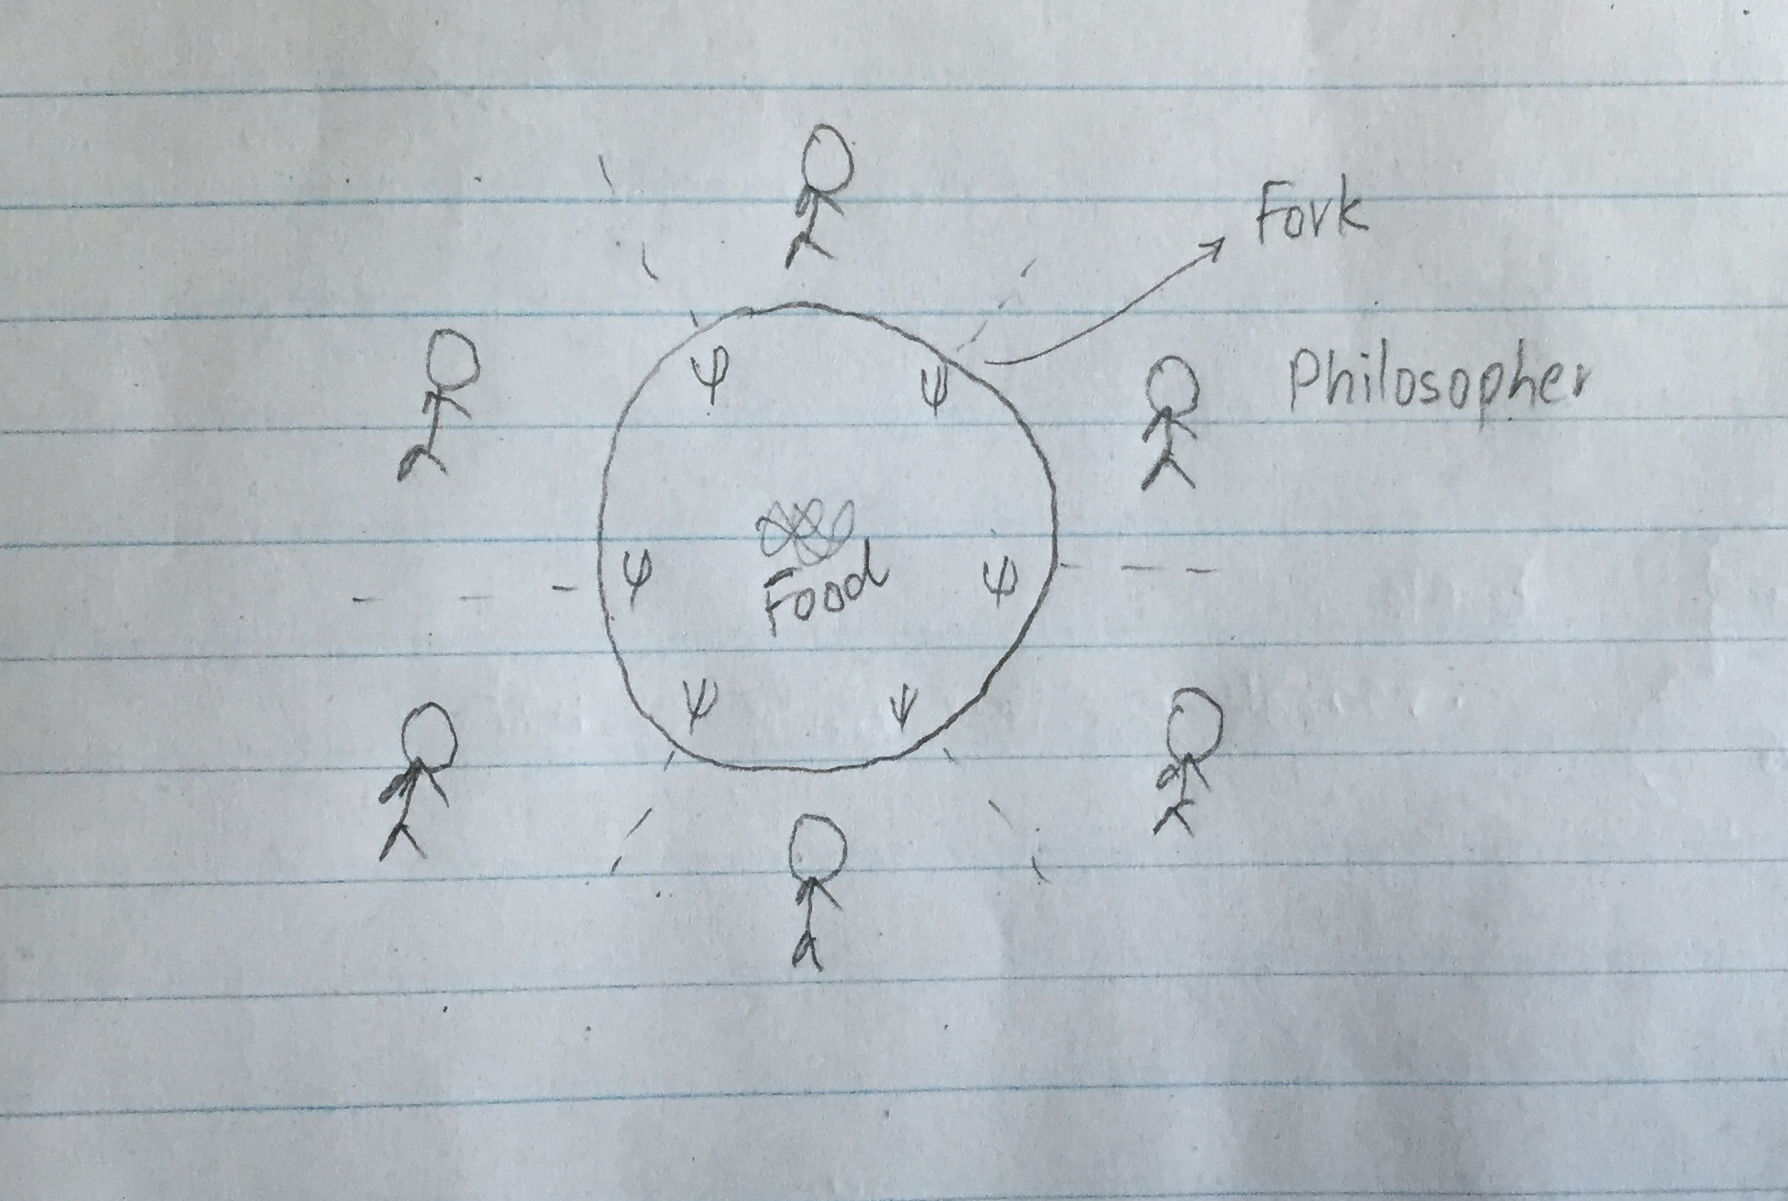 Fork
Philosopher
Food